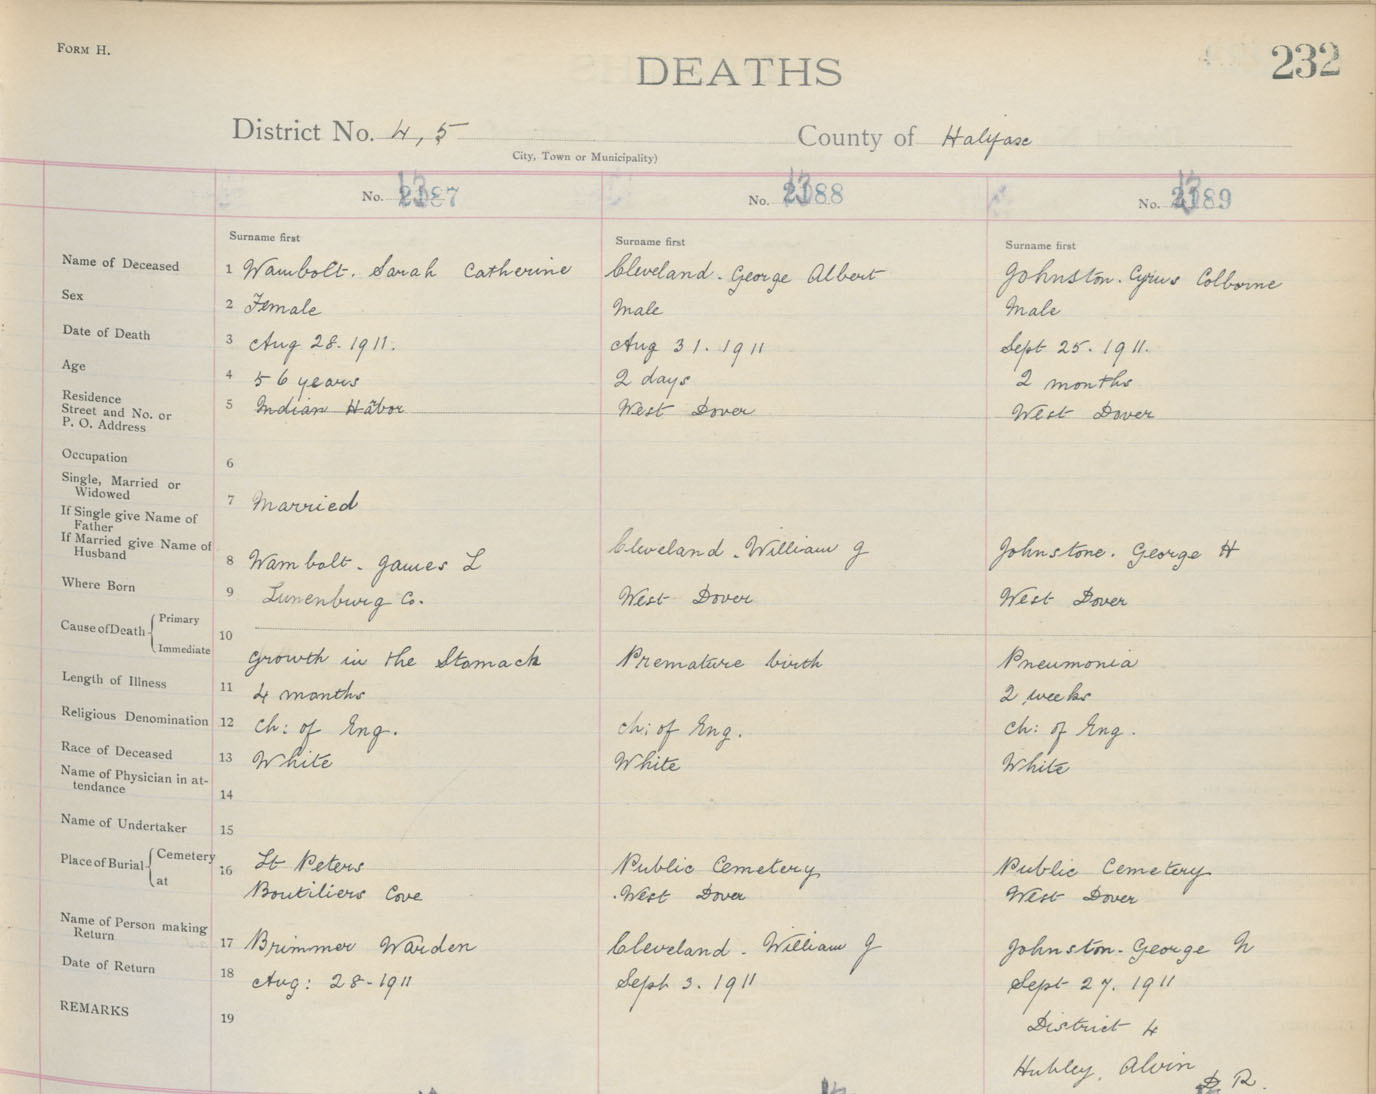 FORM H.
232
DEATHS
District No. 4, 5 County of Halifax
City, Town or Municipality)
No. 2187 No. 2188 No. 2189
Surname first Surname first Surname first
Name of Deceased 1 Wambolt. Sarah Catherine Cleveland. George Albert Johnston. Cyrus Colborne
Sex 2 Female Male Male
Date of Death 3 Aug 28. 1911. Aug 31. 1911 Sept 25. 1911.
Age 4 56 years 2 days 2 months
Residence
Street and No. or
P. O. Address 5 Indian Habor West Dover West Dover
Occupation 6
Single, Married or
Widowed 7 Married
If Single give Name of
Father
If Married give Name of
Husband 8 Wambolt. James L Cleveland. William J Johnstone. George H
Where Born 9 Lunenburg Co. West Dover West Dover
Cause of Death Primary
Immediate 10 growth in the Stomack Premature birth Pneumonia
Length of Illness 11 4 months 2 weeks
Religious Denomination 12 Ch: of Eng. Ch: of Eng. Ch: of Eng.
Race of Deceased 13 White White White
Name of Physician in at-
tendance 14
Name of Undertaker 15
Place of Burial Cemetery 16 St Peters Public Cemetery Public Cemetery
at Boutiliers Cove West Dover West Dover
Name of Person making
Return 17 Brimmer Warden Cleveland. William J Johnston. George
Date of Return 18 Aug: 28-1911 Sept 3. 1911 Sept 27. 1911
REMARKS 19 District 4
Hubley, Alvin
D R.